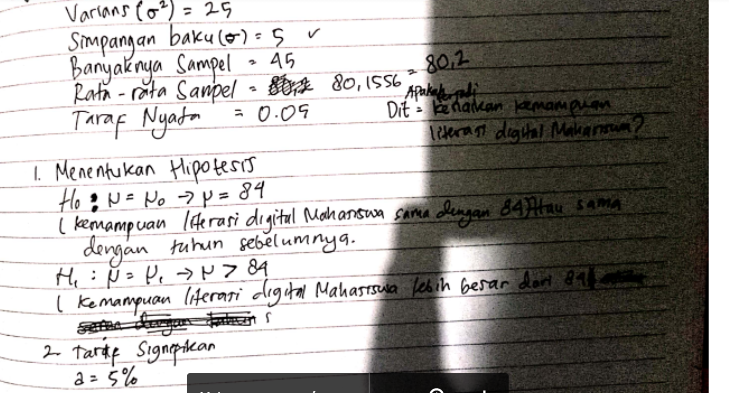 Varians (σ²) = 25
Simpangan baku (σ) = 5 ✓
Banyaknya Sampel = 45
Rata - rata Sampel = 80,1556 = 80,2
Taraf Nyata = 0.05
Dit = Apakah terjadi kenaikan kemampuan
literasi digital Mahasiswa?
1. Menentukan Hipotesis
H₀ : μ = μ₀ → μ = 84
( kemampuan literasi digital Mahasiswa sama dengan 84 Atau sama
dengan tahun sebelumnya.
H₁ : μ = μ₁ → μ > 84
( kemampuan literasi digital Mahasiswa lebih besar dari 84
2. Taraf Signifikan
a = 5%